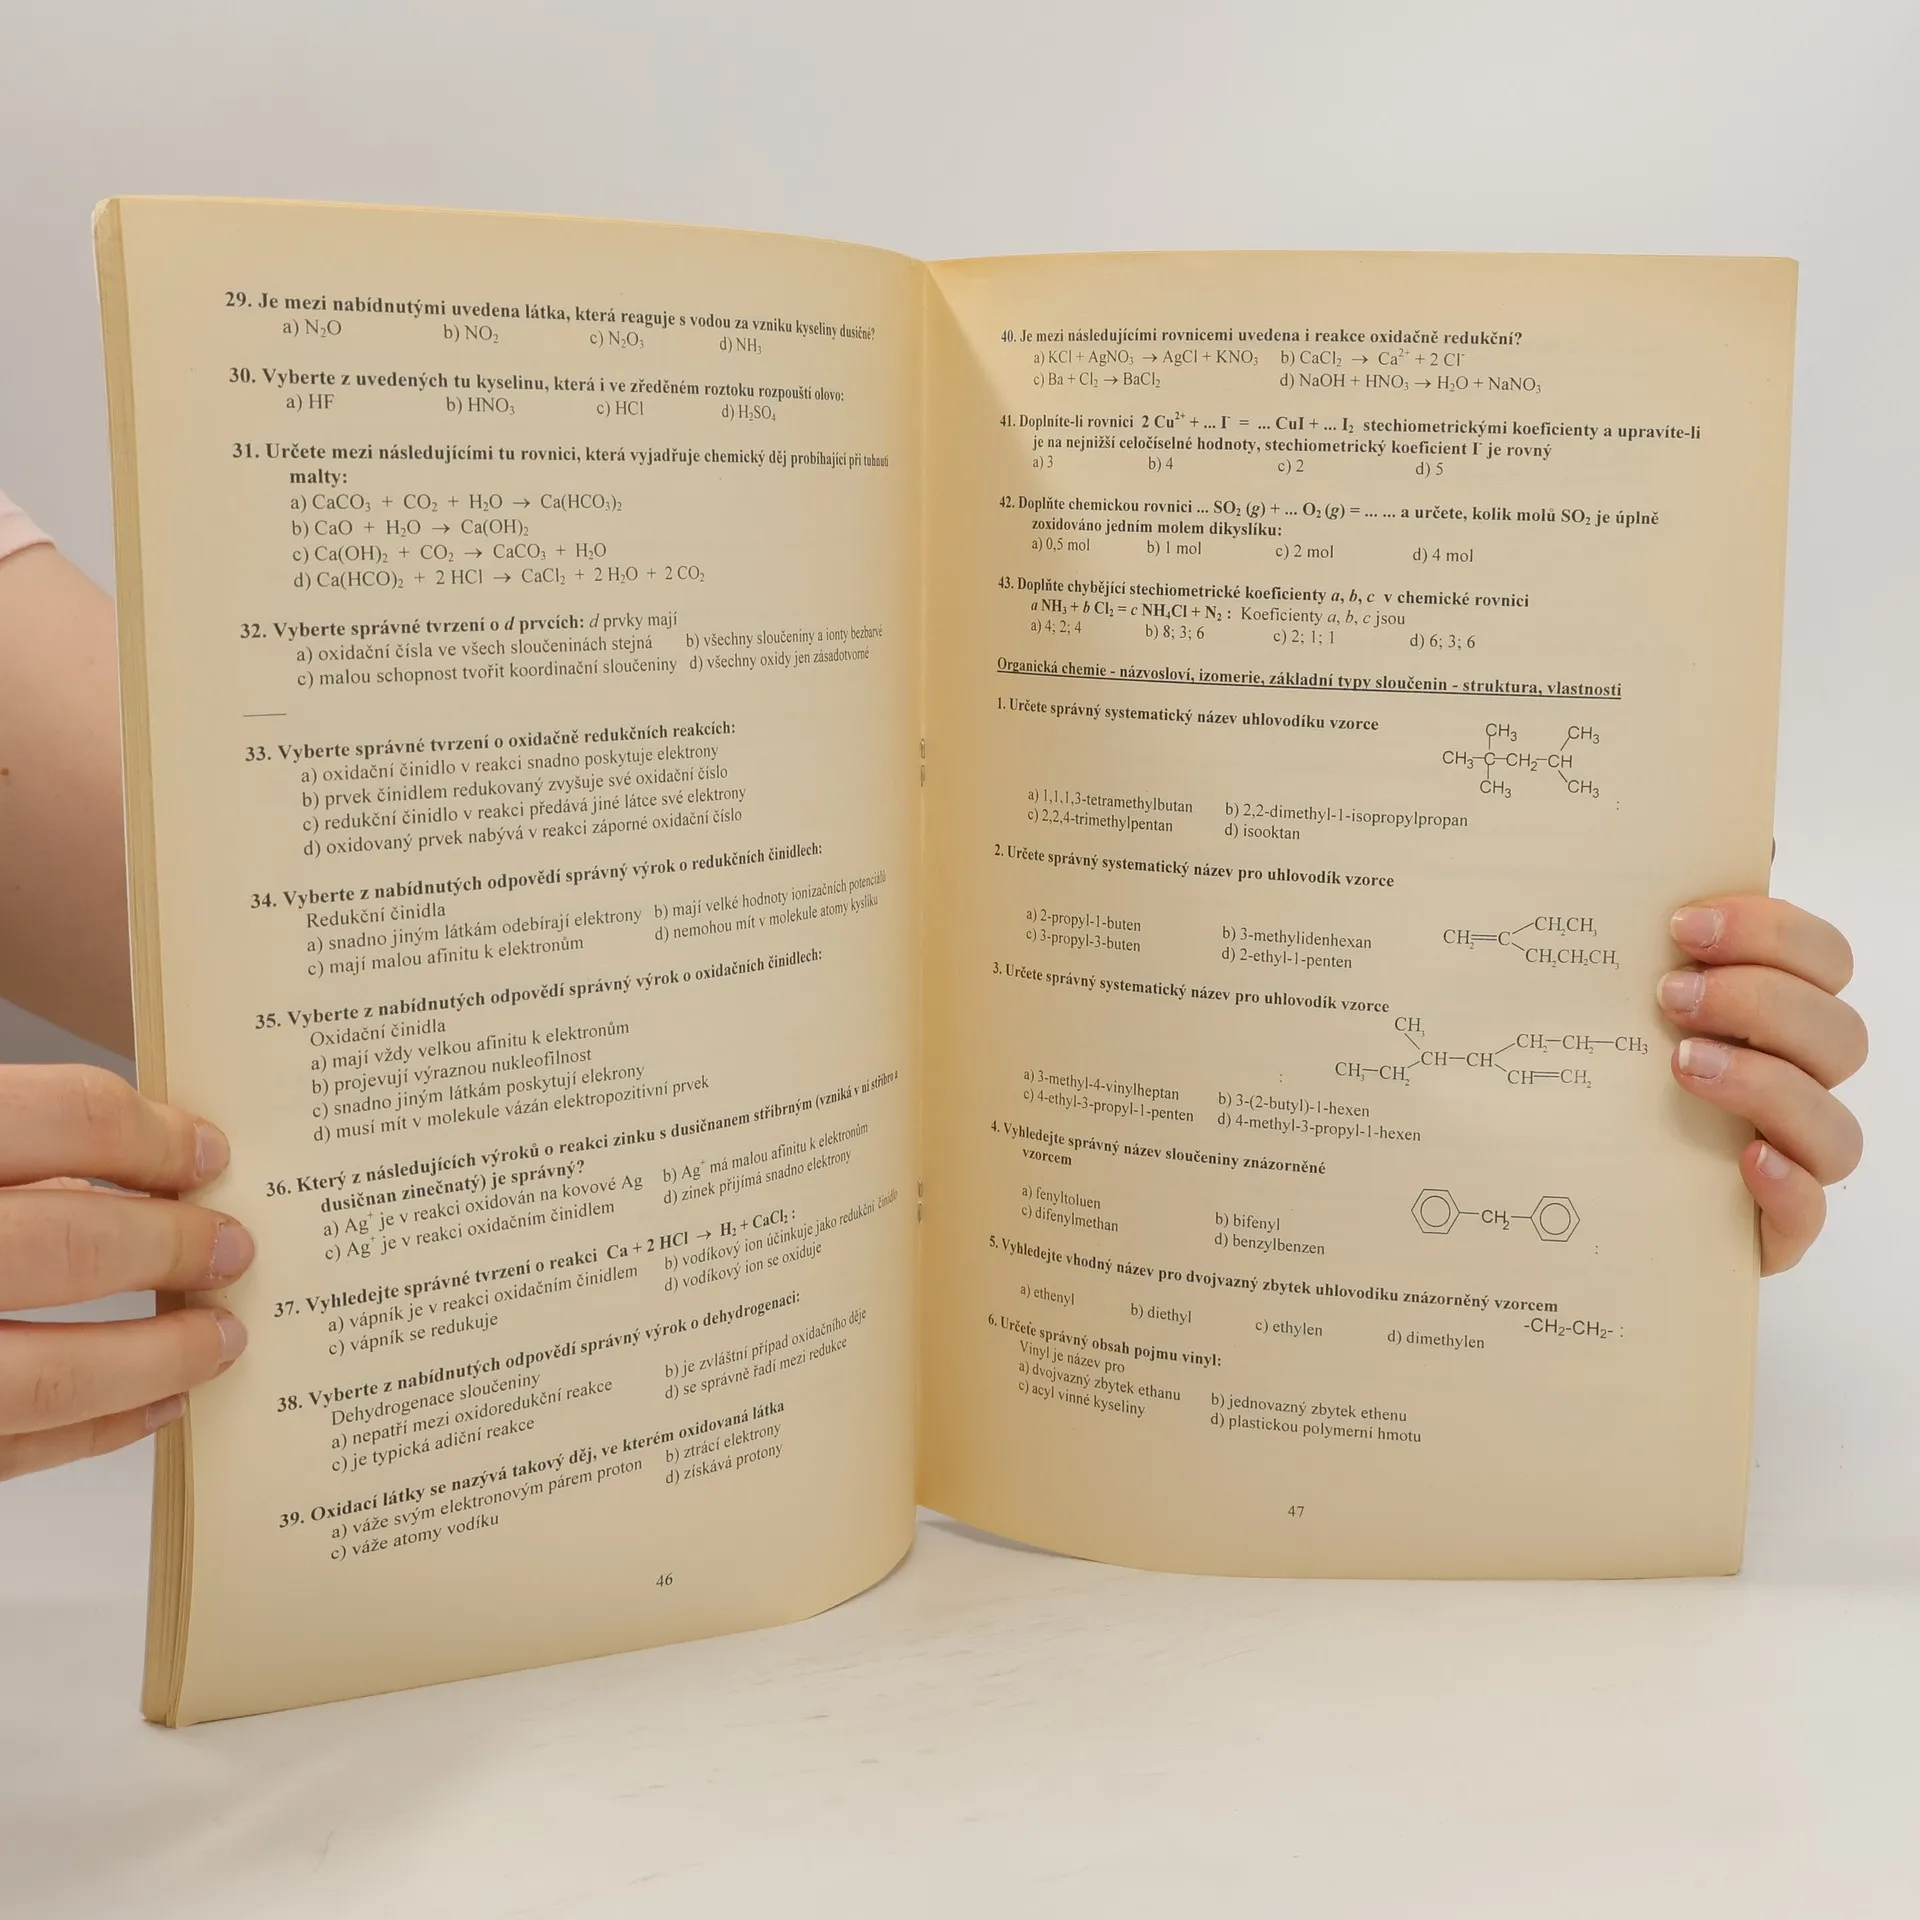 29. Je mezi nabídnutými uvedena látka, která reaguje s vodou za vzniku kyseliny dusičné?
a) N₂O b) NO₂ c) N₂O₃ d) NH₃
30. Vyberte z uvedených tu kyselinu, která i ve zředěném roztoku rozpouští olovo:
a) HF b) HNO₃ c) HCl d) H₂SO₄
31. Určete mezi následujícími tu rovnici, která vyjadřuje chemický děj probíhající při tuhnutí
malty:
a) CaCO₃ + CO₂ + H₂O → Ca(HCO₃)₂
b) CaO + H₂O → Ca(OH)₂
c) Ca(OH)₂ + CO₂ → CaCO₃ + H₂O
d) Ca(HCO)₂ + 2 HCl → CaCl₂ + 2 H₂O + 2 CO₂
32. Vyberte správné tvrzení o d prvcích: d prvky mají
a) oxidační čísla ve všech sloučeninách stejná b) všechny sloučeniny a ionty bezbarvé
c) malou schopnost tvořit koordinační sloučeniny d) všechny oxidy jen zásadotvorné
33. Vyberte správné tvrzení o oxidačně redukčních reakcích:
a) oxidační činidlo v reakci snadno poskytuje elektrony
b) prvek činidlem redukovaný zvyšuje své oxidační číslo
c) redukční činidlo v reakci předává jiné látce své elektrony
d) oxidovaný prvek nabývá v reakci záporné oxidační číslo
34. Vyberte z nabídnutých odpovědí správný výrok o redukčních činidlech:
Redukční činidla
a) snadno jiným látkám odebírají elektrony b) mají velké hodnoty ionizačních potenciálů
c) mají malou afinitu k elektronům d) nemohou mít v molekule atomy kyslíku
35. Vyberte z nabídnutých odpovědí správný výrok o oxidačních činidlech:
Oxidační činidla
a) mají vždy velkou afinitu k elektronům
b) projevují výraznou nukleofilnost
c) snadno jiným látkám poskytují elekrony
d) musí mít v molekule vázán elektropozitivní prvek
36. Který z následujících výroků o reakci zinku s dusičnanem stříbrným (vzniká v ní stříbro a
dusičnan zinečnatý) je správný?
a) Ag⁺ je v reakci oxidován na kovové Ag b) Ag⁺ má malou afinitu k elektronům
c) Ag⁺ je v reakci oxidačním činidlem d) zinek přijímá snadno elektrony
37. Vyhledejte správné tvrzení o reakci Ca + 2 HCl → H₂ + CaCl₂ :
a) vápník je v reakci oxidačním činidlem b) vodíkový ion účinkuje jako redukční činidlo
c) vápník se redukuje d) vodíkový ion se oxiduje
38. Vyberte z nabídnutých odpovědí správný výrok o dehydrogenaci:
Dehydrogenace sloučeniny
a) nepatří mezi oxidoredukční reakce b) je zvláštní případ oxidačního děje
c) je typická adiční reakce d) se správně řadí mezi redukce
39. Oxidací látky se nazývá takový děj, ve kterém oxidovaná látka
a) váže svým elektronovým párem proton b) ztrácí elektrony
c) váže atomy vodíku d) získává protony
46
40. Je mezi následujícími rovnicemi uvedena i reakce oxidačně redukční?
a) KCl + AgNO₃ → AgCl + KNO₃ b) CaCl₂ → Ca²⁺ + 2 Cl⁻
c) Ba + Cl₂ → BaCl₂ d) NaOH + HNO₃ → H₂O + NaNO₃
41. Doplníte-li rovnici 2 Cu²⁺ + ... I⁻ = ... CuI + ... I₂ stechiometrickými koeficienty a upravíte-li
je na nejnižší celočíselné hodnoty, stechiometrický koeficient I⁻ je rovný
a) 3 b) 4 c) 2 d) 5
42. Doplňte chemickou rovnici ... SO₂ (g) + ... O₂ (g) = ... ... a určete, kolik molů SO₂ je úplně
zoxidováno jedním molem dikyslíku:
a) 0,5 mol b) 1 mol c) 2 mol d) 4 mol
43. Doplňte chybějící stechiometrické koeficienty a, b, c v chemické rovnici
a NH₃ + b Cl₂ = c NH₄Cl + N₂ : Koeficienty a, b, c jsou
a) 4; 2; 4 b) 8; 3; 6 c) 2; 1; 1 d) 6; 3; 6
Organická chemie - názvosloví, izomerie, základní typy sloučenin - struktura, vlastnosti
1. Určete správný systematický název uhlovodíku vzorce
CH₃ CH₃
CH₃-C-CH₂-CH
CH₃ CH₃ :
a) 1,1,1,3-tetramethylbutan b) 2,2-dimethyl-1-isopropylpropan
c) 2,2,4-trimethylpentan d) isooktan
2. Určete správný systematický název pro uhlovodík vzorce
CH₂=C CH₂CH₃
CH₂CH₂CH₃
a) 2-propyl-1-buten b) 3-methylidenhexan
c) 3-propyl-3-buten d) 2-ethyl-1-penten
3. Určete správný systematický název pro uhlovodík vzorce
CH₃ CH₂-CH₂-CH₃
CH-CH
CH₃-CH₂ CH=CH₂ :
a) 3-methyl-4-vinylheptan b) 3-(2-butyl)-1-hexen
c) 4-ethyl-3-propyl-1-penten d) 4-methyl-3-propyl-1-hexen
4. Vyhledejte správný název sloučeniny znázorněné
vzorcem
-CH₂- :
a) fenyltoluen b) bifenyl
c) difenylmethan d) benzylbenzen
5. Vyhledejte vhodný název pro dvojvazný zbytek uhlovodíku znázorněný vzorcem
-CH₂-CH₂- :
a) ethenyl b) diethyl c) ethylen d) dimethylen
6. Určete správný obsah pojmu vinyl:
Vinyl je název pro
a) dvojvazný zbytek ethanu b) jednovazný zbytek ethenu
c) acyl vinné kyseliny d) plastickou polymerní hmotu
47